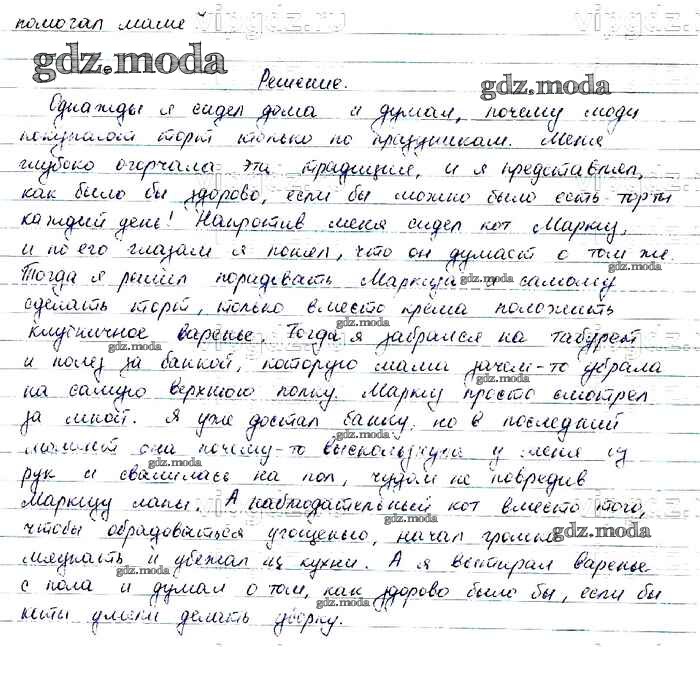 помогал маме
vipgdz.ru vipgdz.ru
gdz.moda
Решение. gdz.moda
Однажды я сидел дома и думал, почему люди
покупают торт только по праздникам. Меня
глубоко огорчала эта традиция, и я представлял,
как было бы здорово, если бы можно было есть торты
каждый день! Напротив меня сидел кот Маркиз,
и по его глазам я понял, что он думает о том же.
Тогда я решил порадовать Маркиза и самому
сделать торт, только вместо крема положить
клубничное варенье. Тогда я забрался на табурет
и полез за банкой, которую мама зачем-то убрала
на самую верхнюю полку. Маркиз просто смотрел
за мной. Я уже достал банку, но в последний
момент она почему-то выскользнула у меня из
рук и свалилась на пол, чудом не повредив
Маркизу лапы. А наблюдательный кот вместо того,
чтобы обрадоваться угощенью, начал громко
мяукать и убежал из кухни. А я вытирал варенье
с пола и думал о том, как здорово было бы, если бы
коты умели делать уборку.